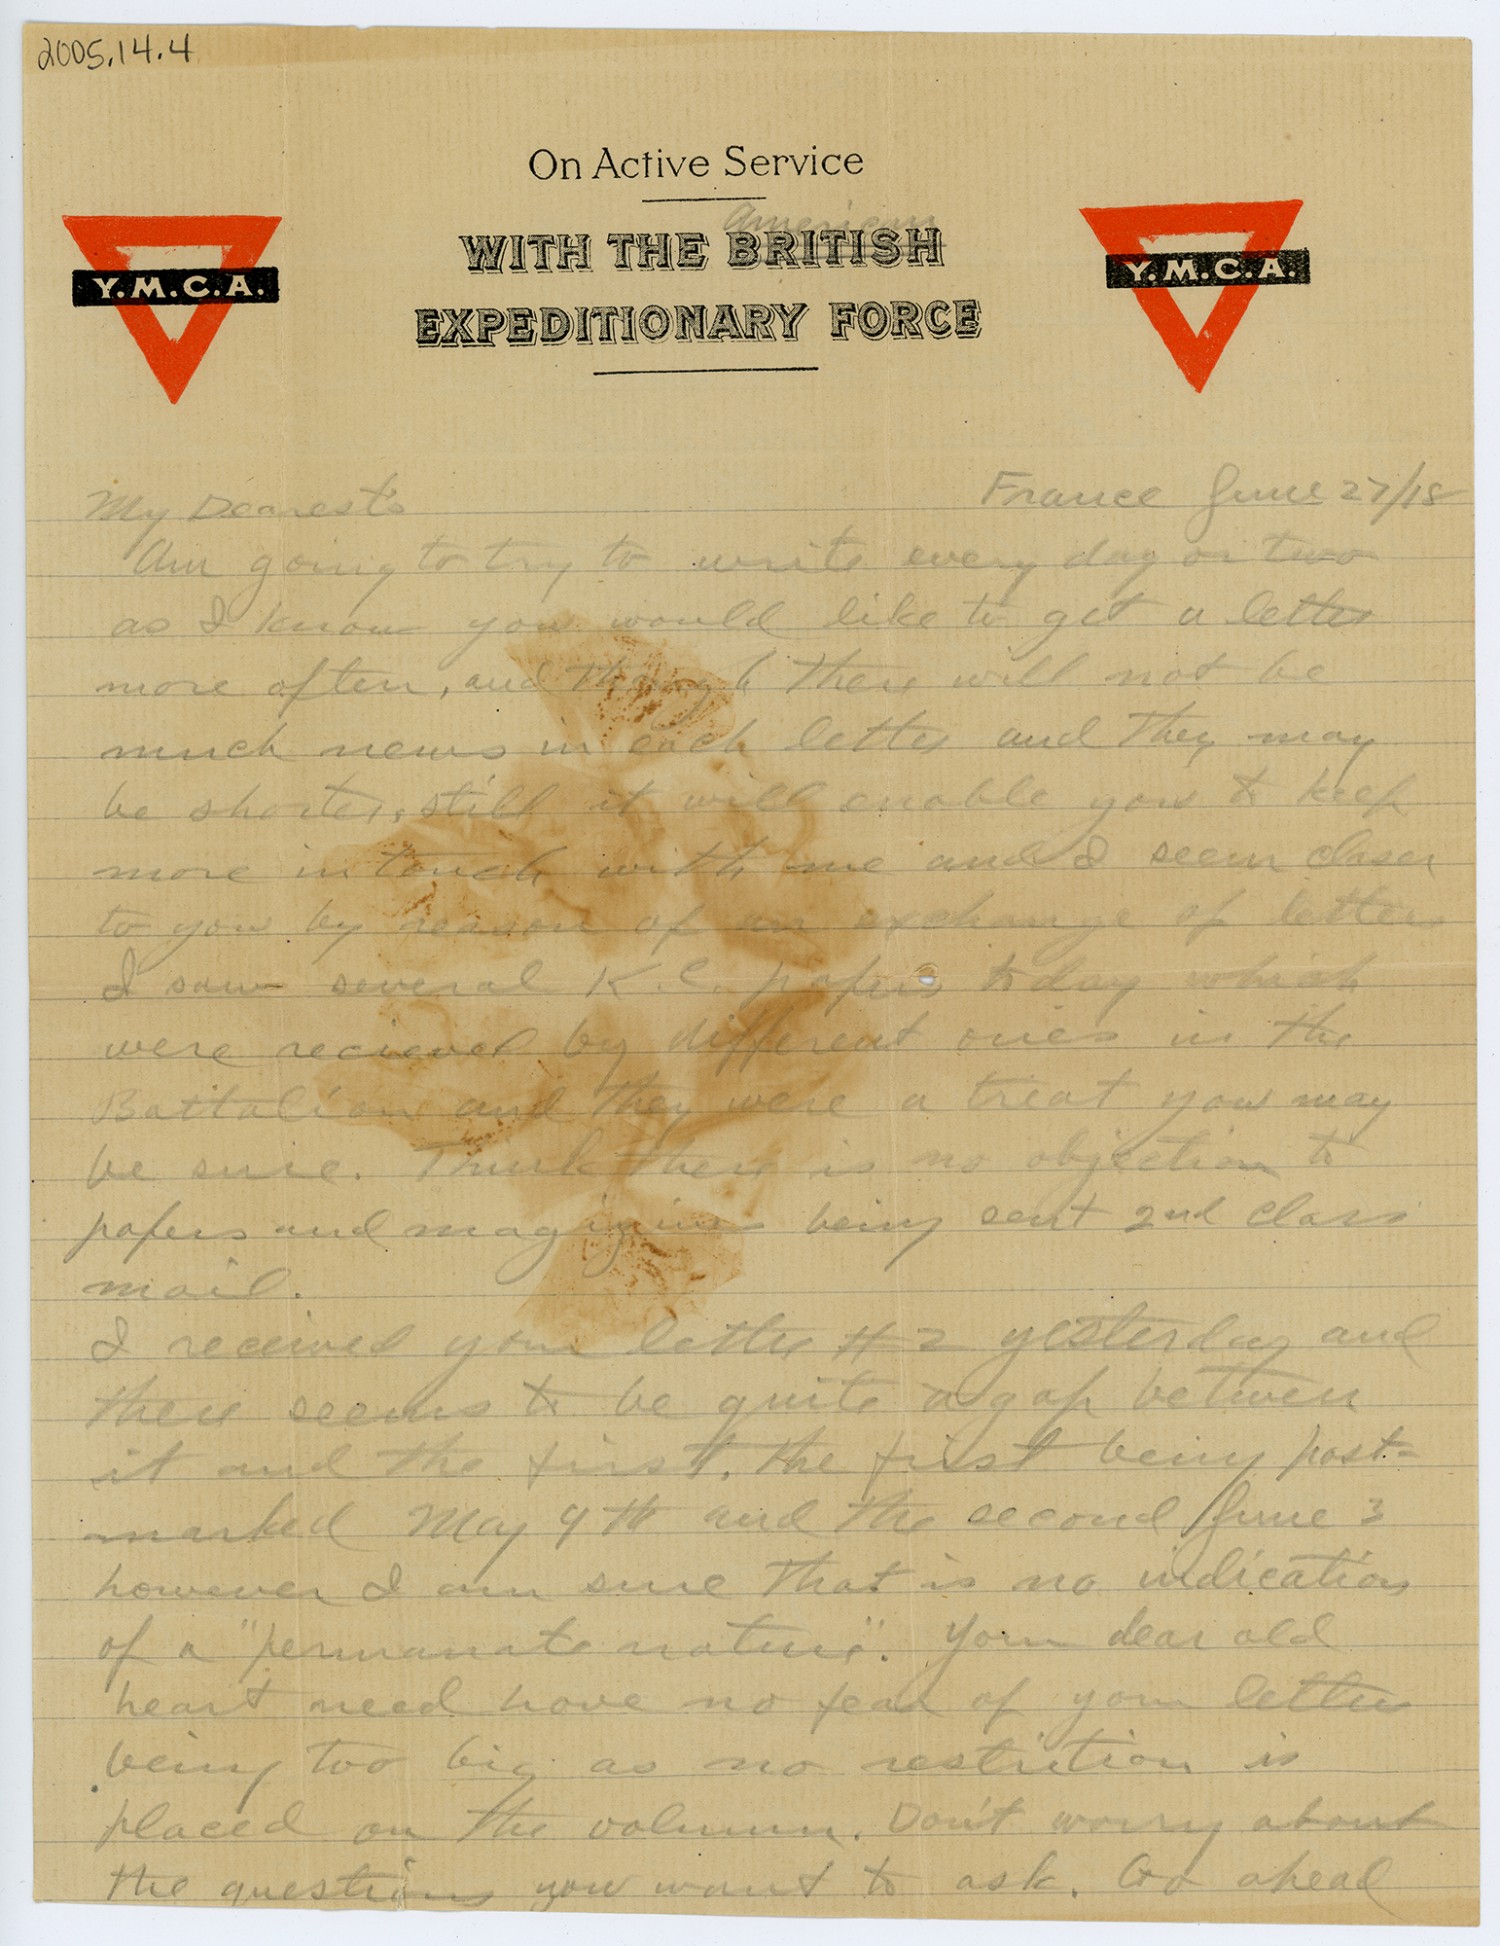 2005.14.4
On Active Service
American
WITH THE BRITISH
EXPEDITIONARY FORCE
Y.M.C.A.
Y.M.C.A.
France June 27/18
My Dearest's
Am going to try to write every day or two
as I know you would like to get a letter
more often, and though there will not be
much news in each letter and they may
be shorter, still it will enable you to keep
more in touch with me and I seem closer
to you by reason of an exchange of letters
I saw several K.C. papers today which
were recieved by different ones in the
Battalion and they were a treat you may
be sure. Think there is no objection to
papers and magizines being sent 2nd class
mail.
I received your letter #2 yesterday and
there seems to be quite a gap between
it and the first, the first being post-
marked May 9th and the second June 3
however I am sure that is no indication
of a "permanate nature". Your dear old
heart need have no fear of your letters
being too big as no restrition is
placed on the volumn. Don't worry about
the questions you want to ask. Go ahead